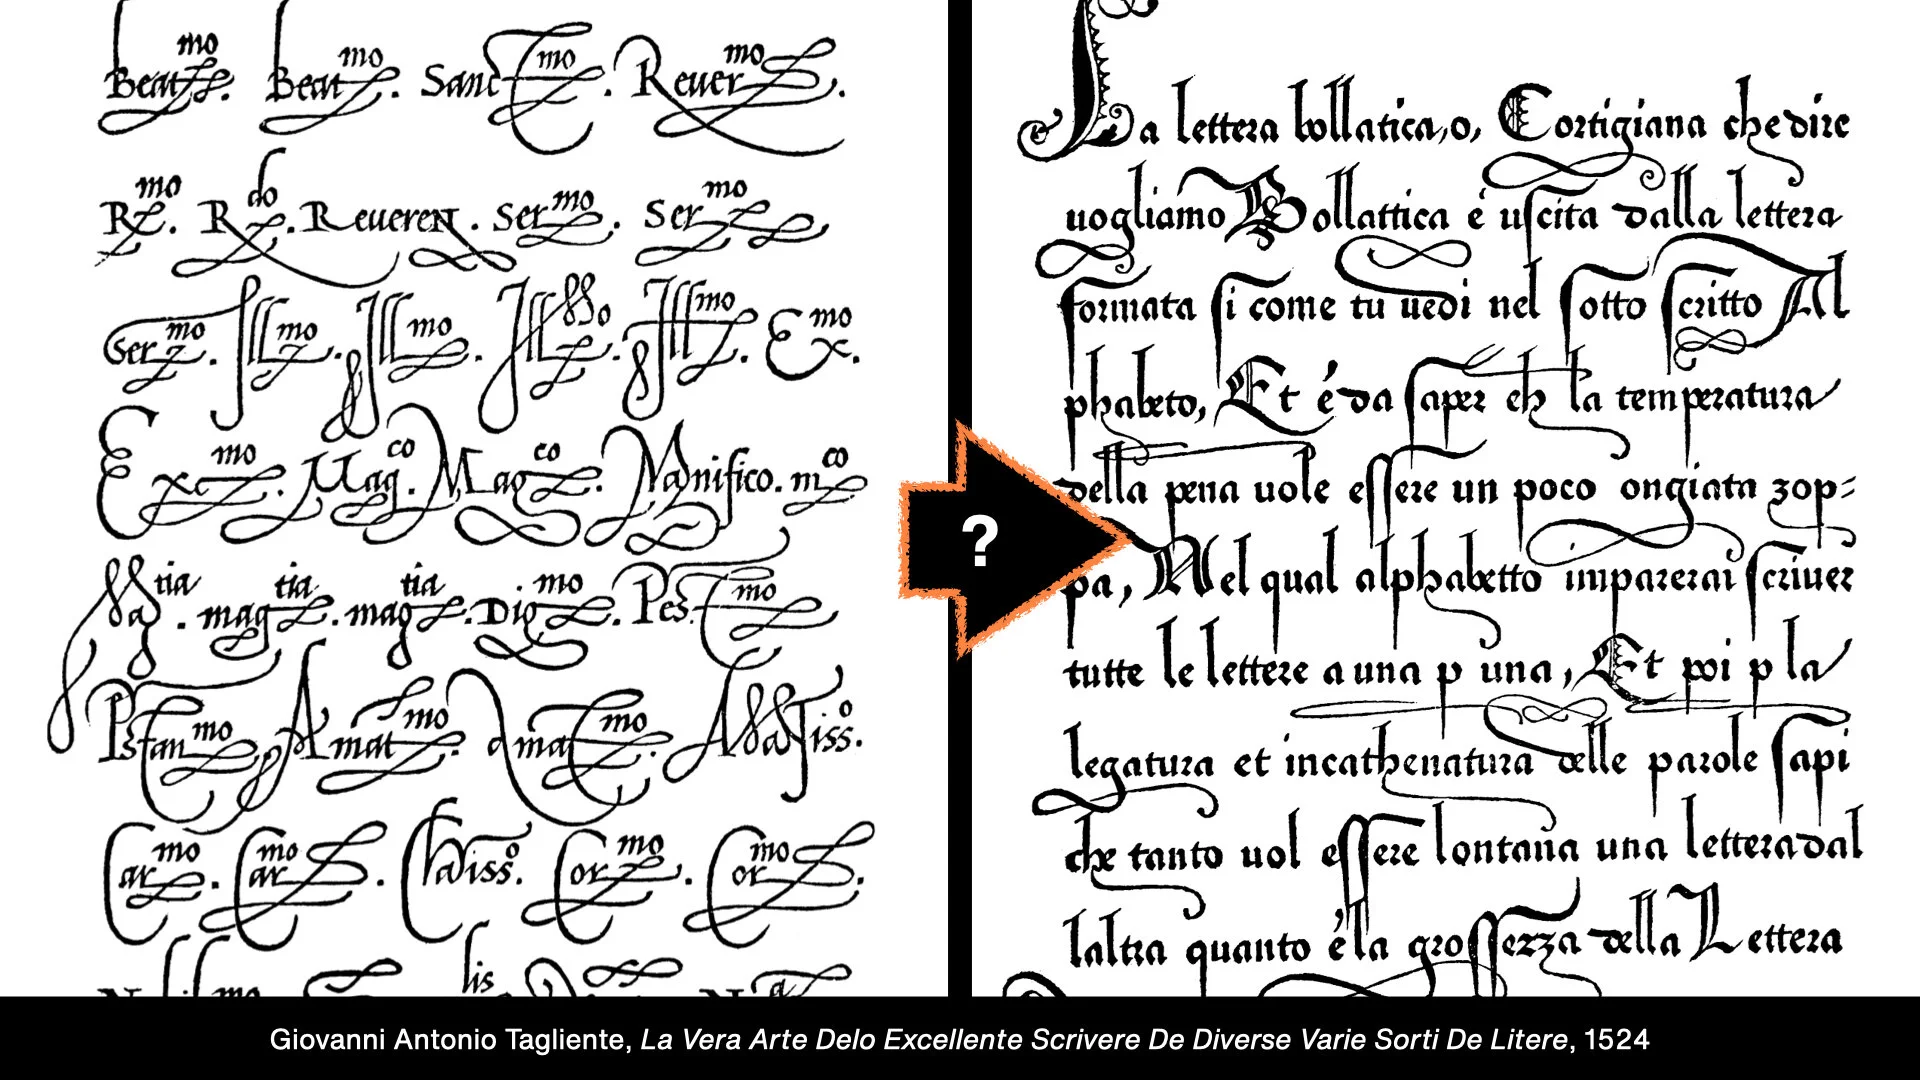 Beat mo. Beat mo. Sanct mo. Reuer mo.
R mo. R do. Reueren. Ser mo. Ser mo.
Ser mo. Ill mo. Ill mo. Ill. Ill mo. Ex mo.
Exc mo. Mag co. Mag co. Manifico. m co
tia. mag tia. mag tia. Dig mo. Pes mo
mo. Amat mo. amat mo. iss o.
Car mo. Car mo. iss o. Cor mo. Cor mo.
lis
?
La lettera bollatica, o, Cortigiana che dire
uogliamo Bollattica é uſcita dalla lettera
formata ſi come tu uedi nel ſotto ſcritto Al
phabeto, Et é da ſaper ch la temperatura
della pena uole eſſere un poco ongiata zop=
pa, Nel qual alphabetto imparerai ſcriuer
tutte le lettere a una p una, Et poi p la
legatura et incathenatura delle parole ſapi
che tanto uol eſſere lontana una lettera dal
laltra quanto é la groſſezza della Lettera
Giovanni Antonio Tagliente, La Vera Arte Delo Excellente Scrivere De Diverse Varie Sorti De Litere, 1524